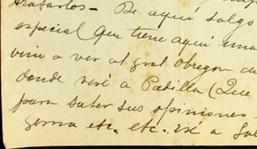 tratarlos - De aquí salgo
especial (que tiene aquí una
vino a ver al gral Obregon
donde veré a Padilla (Que
para saber sus opiniones
etc. etc. a